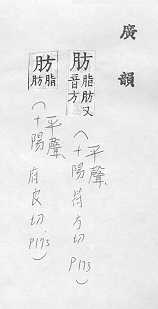 廣韻
肪 脂肪又音方
平聲
（十陽符方切 P173）
肪 脂肪
平聲
（十陽府良切 P173）